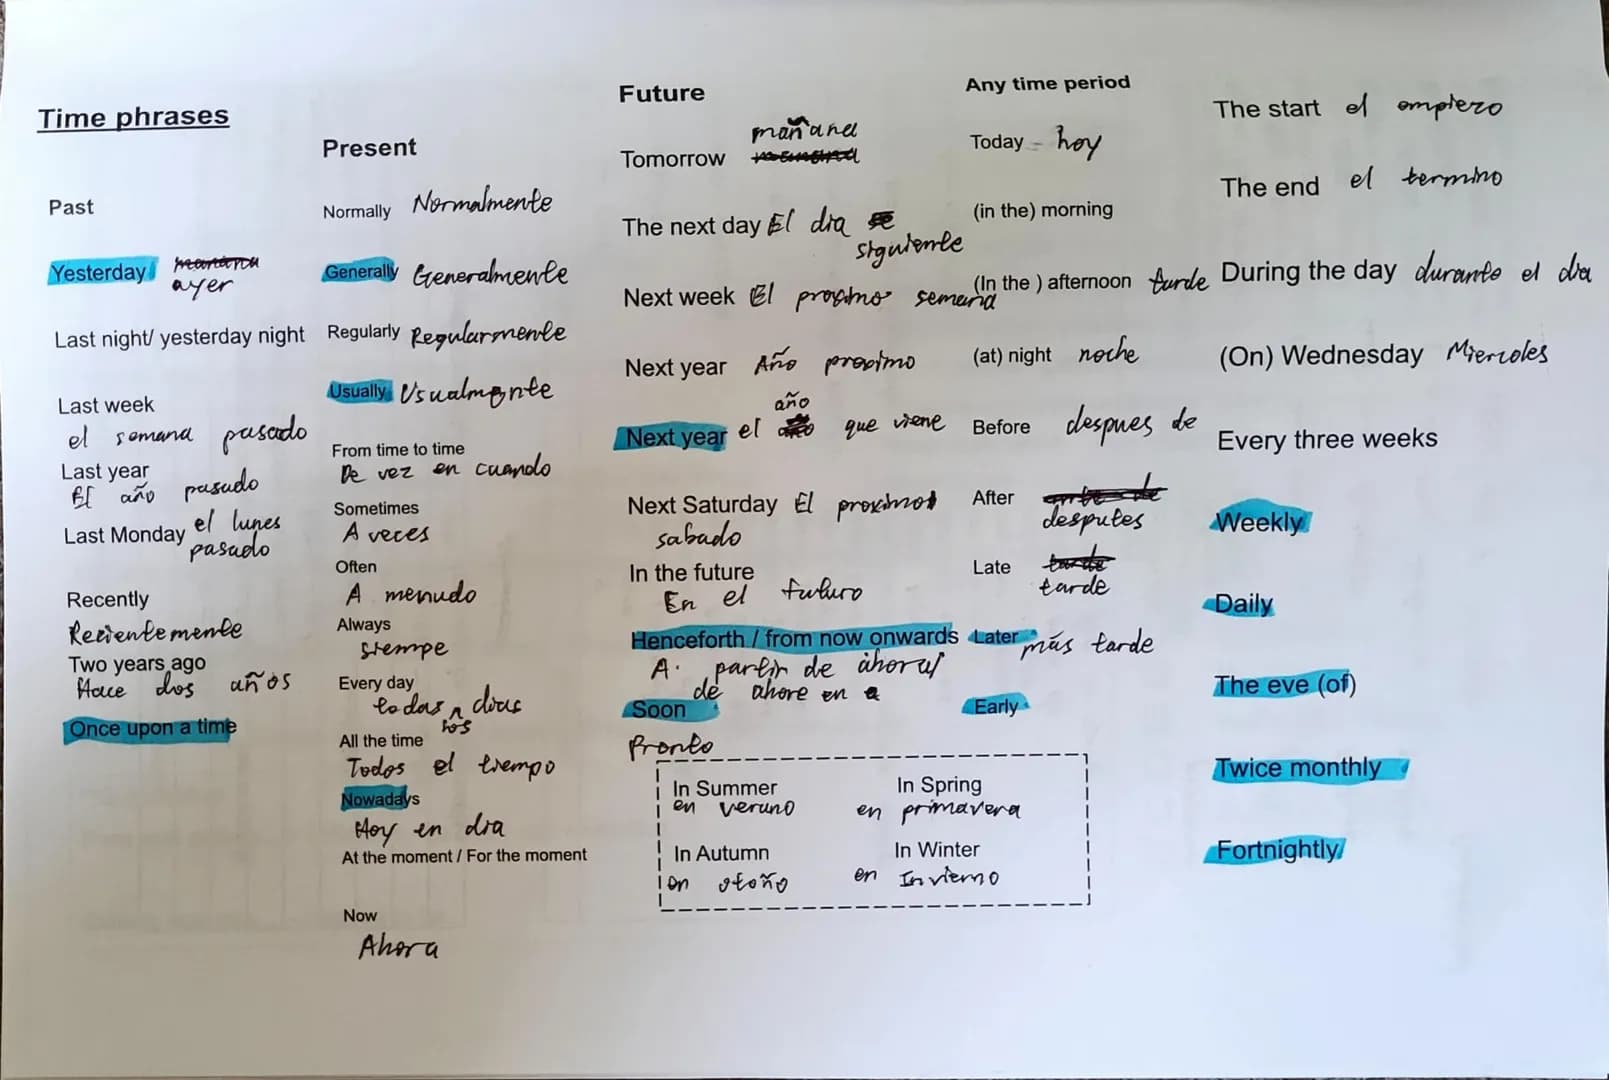 Time phrases
Past
Yesterday ayer
Last night/ yesterday night
Last week
el semana pasado
Last year
El año pasado
Last Monday el lunes
pasado
Recently
Recientemente
Two years ago
Hace dos años
Once upon a time
Present
Normally Normalmente
Generally Generalmente
Regularly Regularmente
Usually Usualmente
From time to time
De vez en cuando
Sometimes
A veces
Often
A menudo
Always
siempe
Every day
todas los dias
All the time
Todos el tiempo
Nowadays
Hoy en dia
At the moment / For the moment
Now
Ahora
Future
mañana
Tomorrow
The next day El dia
siguiente
Next week El proximo semana
Next year Año proximo
año
Next year el que viene
Next Saturday El proximo
sabado
In the future
En el futuro
Henceforth / from now onwards
A partir de ahora/
de ahore en a
Soon
Pronto
In Summer
en verano
In Spring
en primavera
In Autumn
en otoño
In Winter
en Invierno
Any time period
Today - hoy
(in the) morning
(In the ) afternoon tarde
(at) night noche
Before despues de
After
desputes
Late
tarde
Later más tarde
Early
The start el empiezo
The end el termino
During the day durante el dia
(On) Wednesday Miercoles
Every three weeks
Weekly
Daily
The eve (of)
Twice monthly
Fortnightly